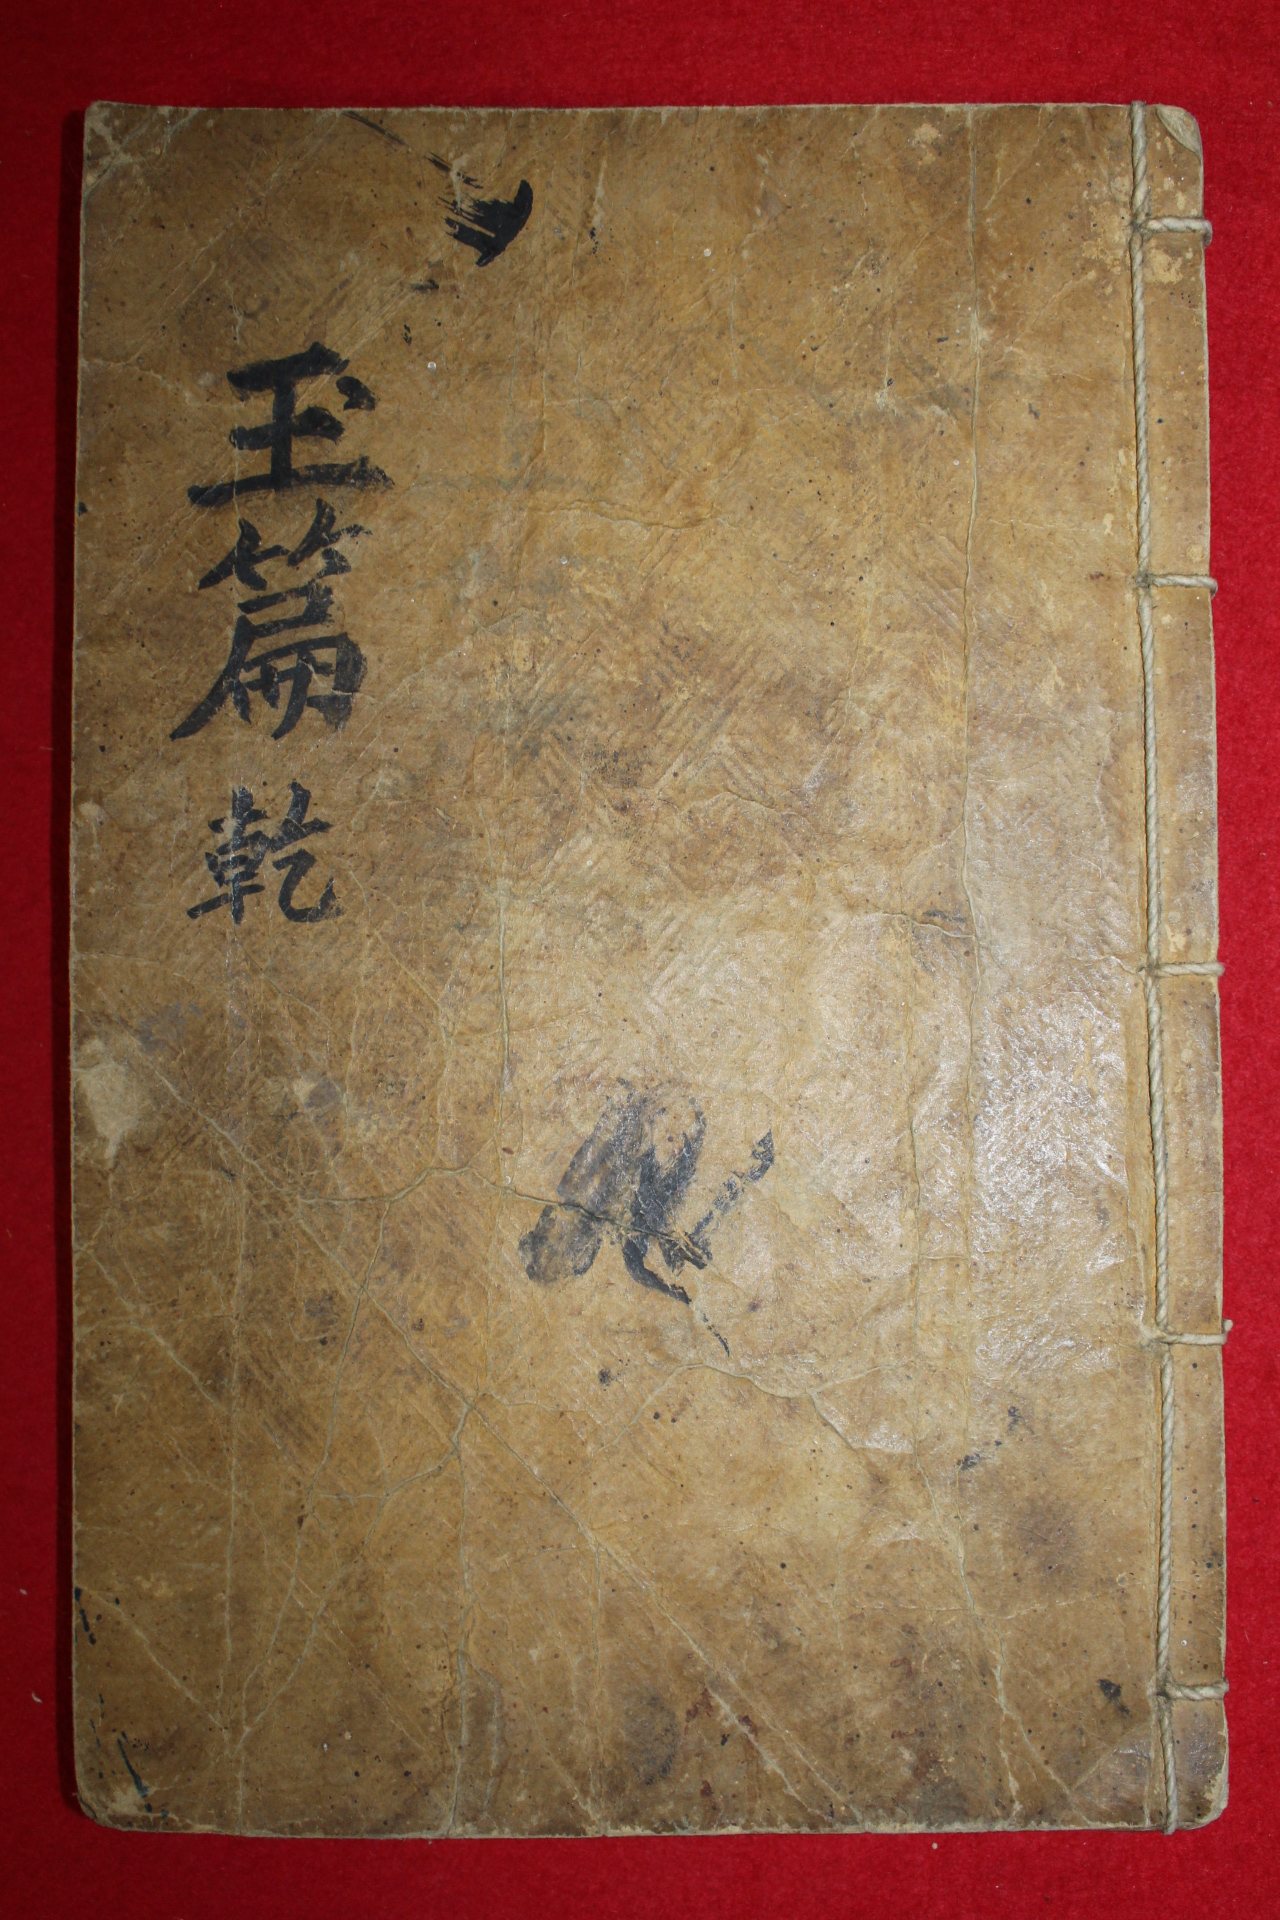 玉篇 乾